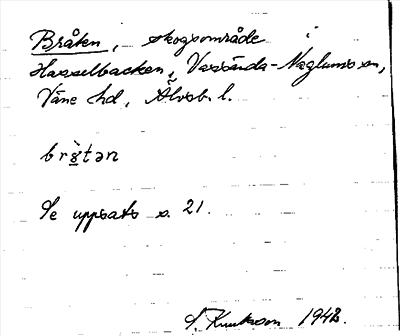 Bråten, skogsområde i
Hasselbacken, Vassända-Naglums sn,
Väne hd, Älvsb. l.
br&̀tən
Se uppsats s. 21.
Knutsson 1942.